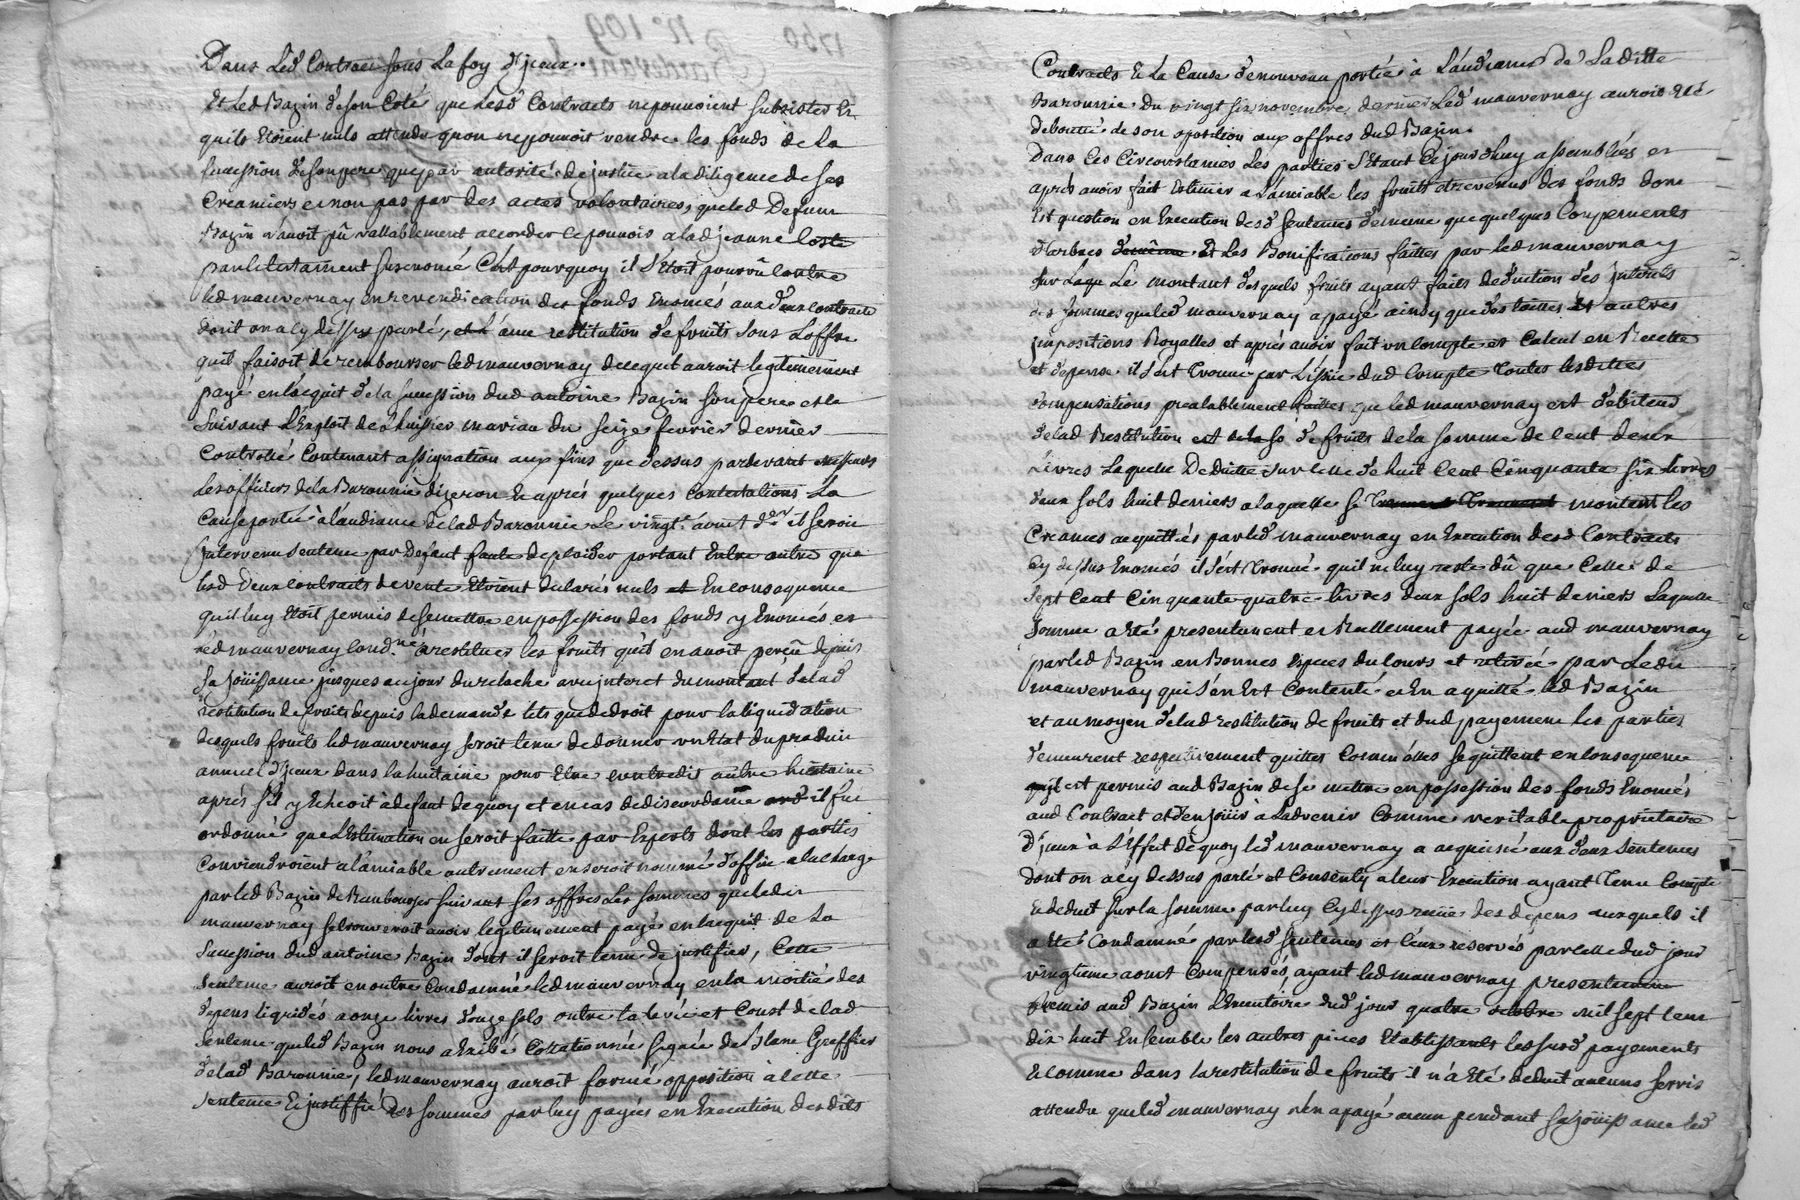 Dans Led Contract sous La foy d'jceux.
Et Led Bazin de son Coté que Lesd Contracts ne pouvoient subsister Et
quils Etoient nuls attendu quon ne pouvoit vendre les fonds de la
sucession de son pere que par autorité de justice a la diligence de ses
Creanciers et non pas par des actes volontaires, que led Defunt
Bazin n'avoit pû vallablement accorder ce pouvoir a lad jeanne
par le testament susenoncé C'est pourquoy il s'Etoit pourvû contre
led mauvernay en revendication des fonds Enoncés aux deux contracts
dont on a cy dessus parlé, et L'avec restitution de fruits sous Loffre
quil faisoit de rembourser led mauvernay de ce quil auroit legitimement
payé en lacquit de la sucession dud antoine Bazin son pere et ce
suivant L'Exploit de Lhuissier mariau du seize fevrier dernier
Controllé Contenant assignation aux fins que dessus pardevant messieurs
Les officiers de la Baronnie dizeron Et aprés quelques Contestations La
Cause portée à laudiance de lad Baronnie Le vingt aoust der il seroit
Intervenu sentence par Defaut faute de plaider portant Entre autre que
lesd Deux contracts de vente Etoient declarés nuls et En consequence
quil luy Etoit permis de se mettre en possession des fonds y Enoncés et
led mauvernay cond.né à restituer les fruits quil en avoit perçû depuis
sa joüissance jusques au jour du relache avec interet du montant de lad
restitution de fruits depuis la demande tels que de droit pour la liquidation
desquels fruits led mauvernay seroit tenu de donner un Etat du produit
annuel d'jceux dans la huitaine pour Etre contredit autre huitaine
aprés s'il y Echeoit à defaut de quoy et en cas de discordance il fut
ordonné que L'Estimation en seroit faitte par Experts dont les parties
Conviendroient a l'amiable autrement en seroit nommé d'office a la charge
par led Bazin de Rembourser suivant ses offres Les sommes que led
mauvernay se trouveroit avoir legitimement payé en lacquit de la
sucession dud antoine Bazin dont il seroit tenu de justifier, Cette
sentence auroit en outre Condamné led mauvernay en la moitié des
depens liquidés a onze livres douze sols outre la levée et Coust de lad
sentence que led Bazin nous a Exibé Collationnée signée de Greffier
de lad Baronnie, led mauvernay auroit formé opposition à cette
sentence Et justiffié des sommes par luy payées en Execution desdits
Contracts Et La Cause de nouveau portée à L'audiance de Laditte
Baronnie du vingt six novembre dernier Led mauvernay auroit eté
debouté de son oposition aux offres dud Bazin.
Dans Ces Circonstances Les parties s'Etant Cejourdhuy assemblées et
aprés avoir fait Estimer a L'amiable les fruits et revenus des fonds dont
Est question en Execution desd sentences de meme que quelques Coupements
d'arbres Et Les Bonifications faittes par led mauvernay
sur Le montant desquels fruits ayant faits deduction des Interets
des sommes que led mauvernay a payé ainsy que des tailles Et autres
jmpositions Royalles et aprés avoir fait un Compte et Calcul en Recette
et depense il s'est trouvé par L'issüe dud Compte toutes lesdittes
compensations prealablement faittes que led mauvernay est debiteur
de lad Restitution de fruits de la somme de Cent deux
Livres Laquelle Deduitte sur Celle de huit Cent Cinquante six livres
deux sols huit deniers a laquelle se montent les
Creances acquittées par led mauvernay en Execution desd Contracts
Cy dessus Enoncés il s'est trouvé quil ne luy reste dû que Celle de
sept Cent Cinquante quatre livres deux sols huit deniers Laquelle
somme a Eté presentement et Reellement payée aud mauvernay
par led Bazin en Bonnes Especes du Cours et retirée par Led
mauvernay qui s'en Est Contenté et En a quitté led Bazin
et au moyen de lad restitution de fruits et dud payement les parties
demeurent respectivement quittes Comm'elles se quittent en Consequence
est permis aud Bazin de se mettre en possession des fonds Enoncés
aud Contract et d'en joüir à Ladvenir Comme veritable proprietaire
d'jceux à L'effet dequoy led mauvernay a acquiescé aux deux sentences
dont on a cy dessus parlé et Consenty a leur Execution ayant tenu Compte
Et deduit sur la somme par luy Cy dessus reçüe des depens auxquels il
a Eté Condamné par lesd sentences et Ceux reservés par celle dud jour
vingtieme aoust Compensés, ayant led mauvernay presentement
Remis aud Bazin L'Executoire dud jour quatre octobre mil sept cent
dix huit Ensemble les autres pieces Etablissants lesd payements
Et comme dans la restitution de fruits il n'a Eté deduit aucuns servis
attendu que led mauvernay n'en a payé aucun pendant sa joüissance led